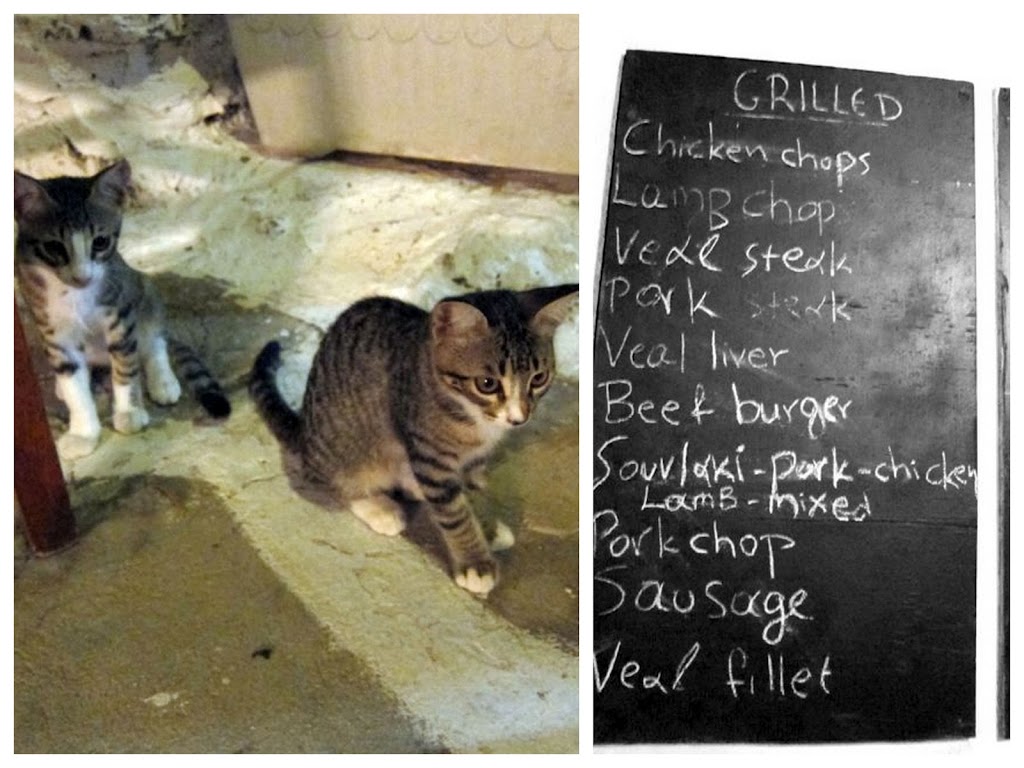 GRILLED
Chicken chops
LamB chop
Veal steak
Pork steak
Veal liver
Beef burger
Souvlaki-pork-chicken
LamB-mixed
Pork chop
Sausage
Veal fillet